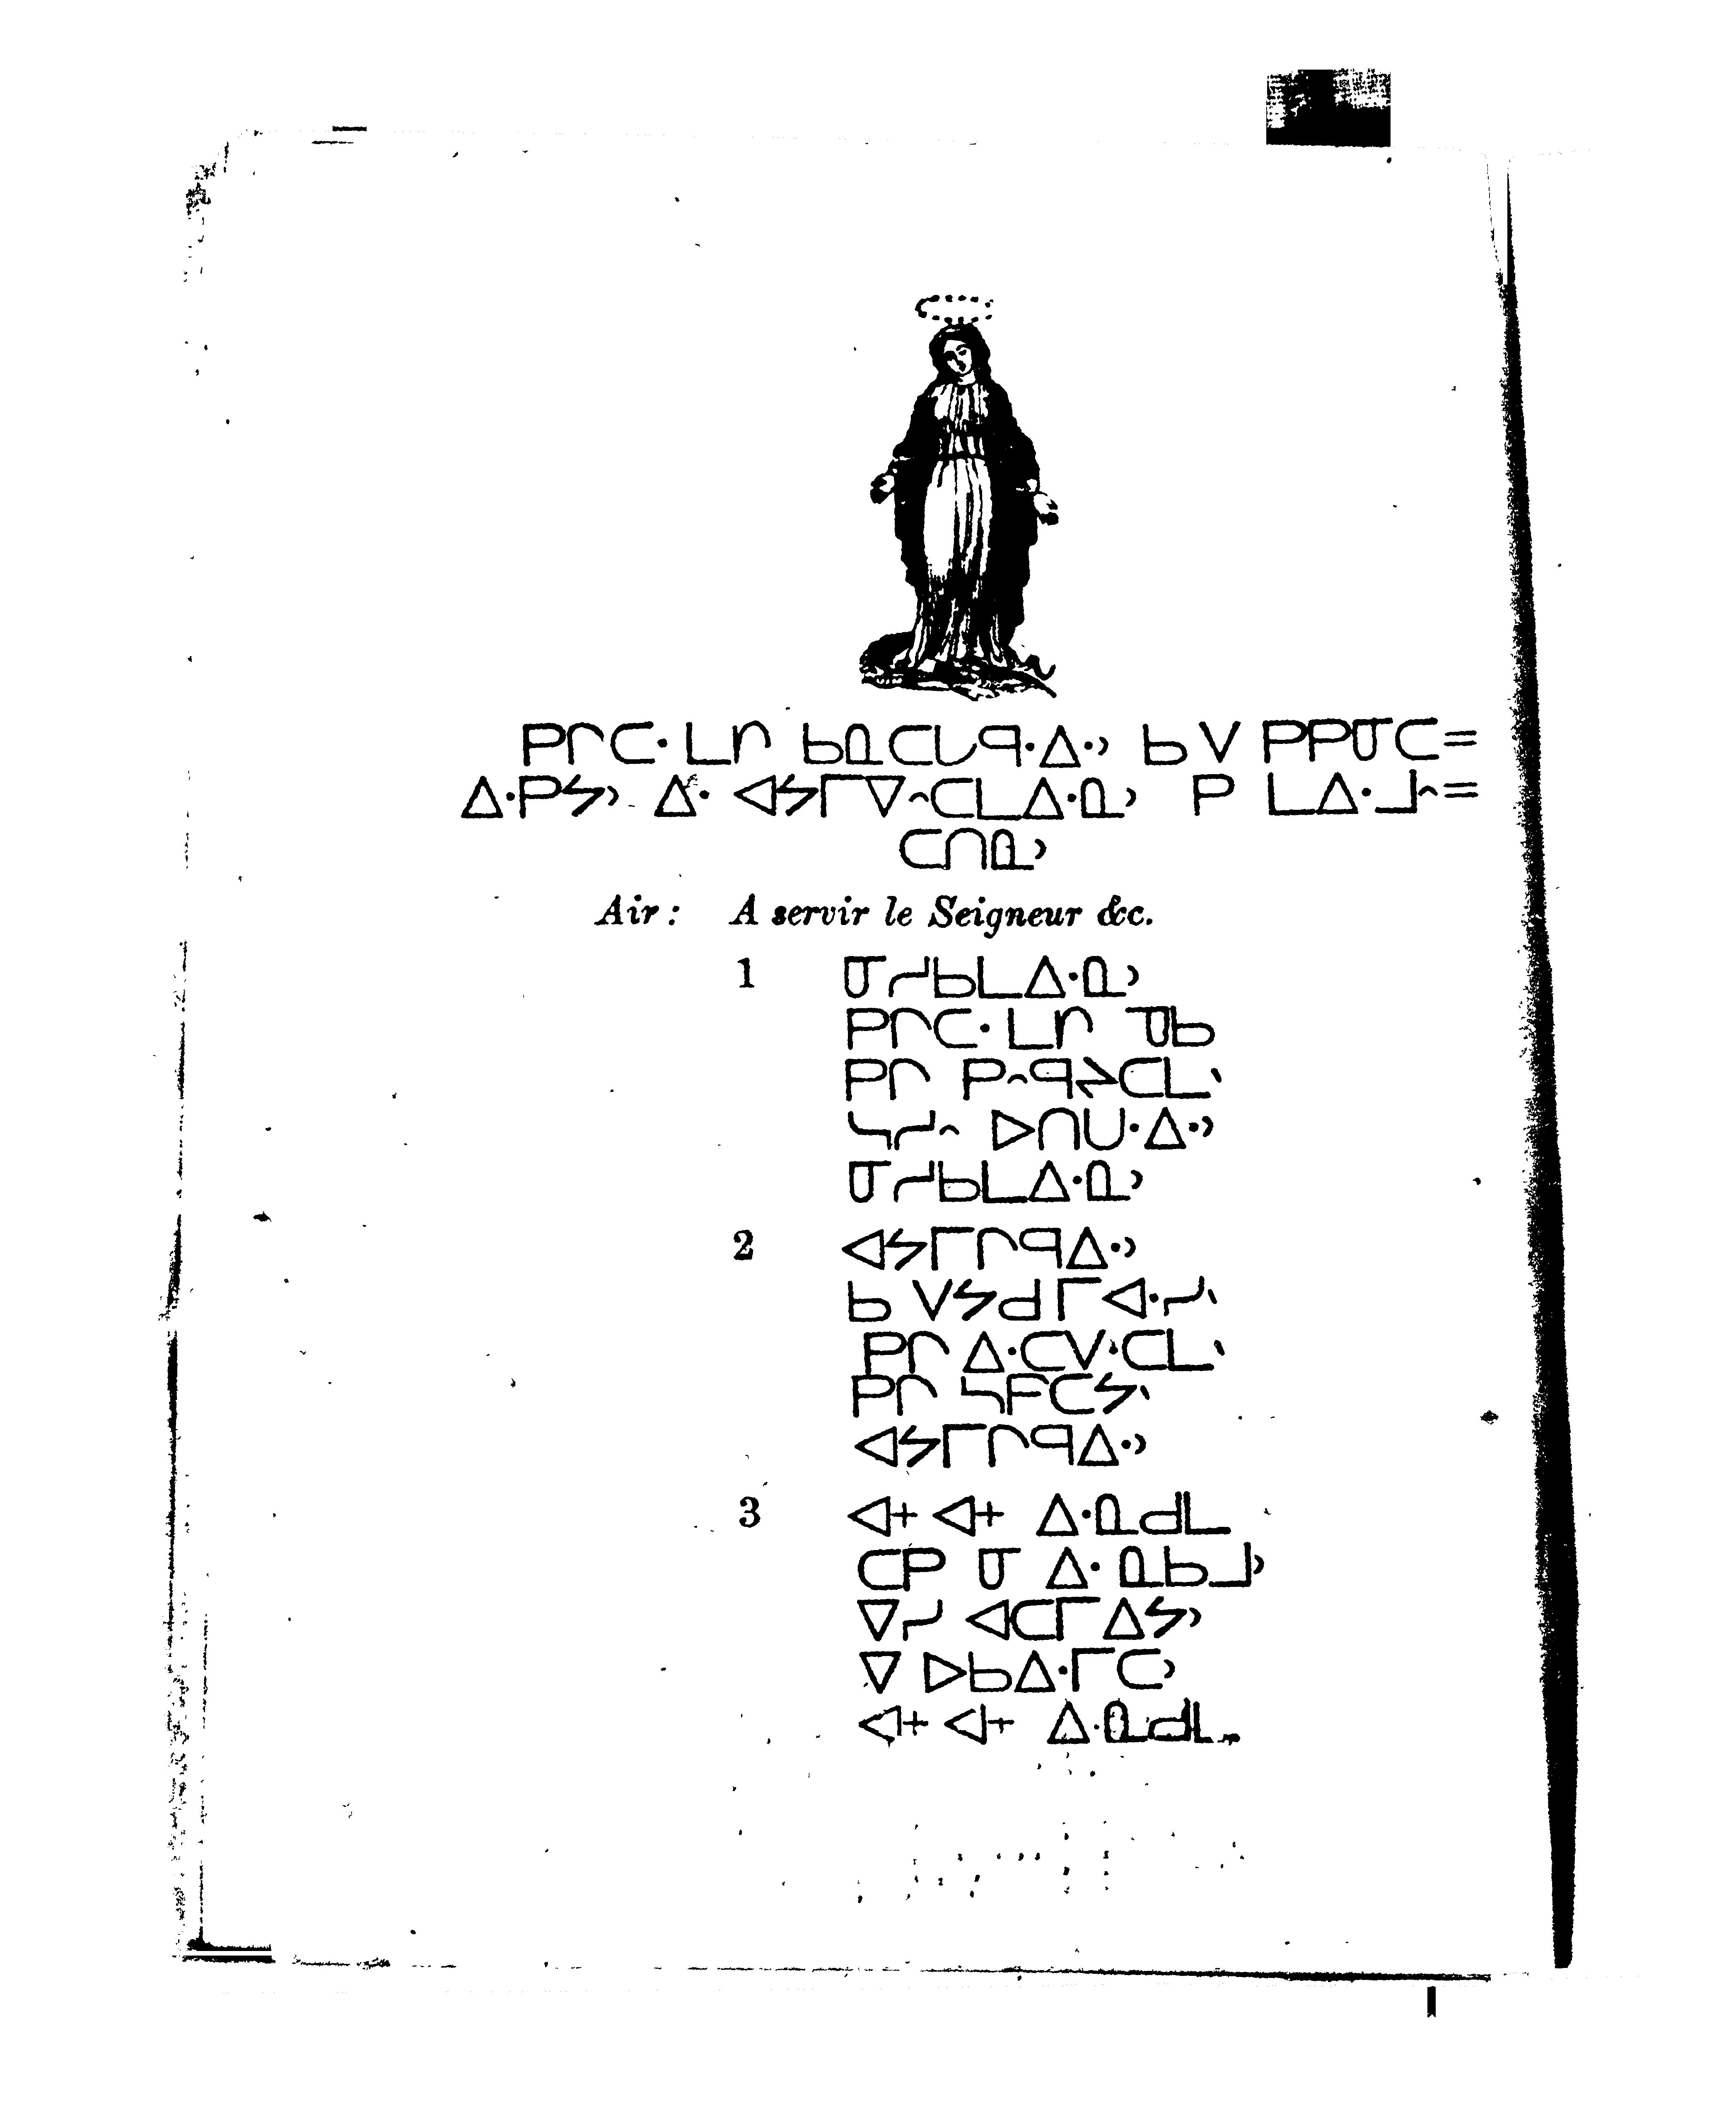 ᑭᒋᑕᐧ ᒪᕆ ᑲᓇᑕᒐᑫᐧᐃᐧᐣ ᑲ ᐯ ᑭᑭᓂᑕ=
ᐃᐧᑭᔭᐣ ᐃᐧ ᐊᔭᒥᐁᐢᑕᒪᐃᐧᓇᐣ ᑭ ᒪᐃᐧᒧᐢ=
ᑕᑎᓇᐣ
Air : A servir le Seigneur &c.
1 ᓂᓱᑲᒪᐃᐧᓇᐣ
ᑭᒋᑕᐧ ᒪᕆ ᓀᑲ
ᑭᒋ ᑭᐢᑫᔨᑕᒪᐠ
ᓭᓱᐢ ᐅᑎᑌᐧᐃᐧᐣ
ᓂᓱᑲᒪᐃᐧᓇᐣ
2 ᐊᔭᒥᒋᑫᐃᐧᐣ
ᑲ ᐯᔭᑯᒥᐊᐧᓯᐠ
ᑭᒋ ᐃᐧᑕᐯᐧᑕᒪᐠ
ᑭᒋ ᓴᑭᑕᔭᐠ
ᐊᔭᒥᒋᑫᐃᐧᐣ
3 ᐊᐩ ᐊᐩ ᐃᐧᓇᑯᒪ
ᑕᑭ ᓂ ᐃᐧ ᓇᑲᒧᐣ
ᐁᓯ ᐊᑕᒥᐃᔭᐣ
ᐁ ᐅᑲᐃᐧᒥᑕᐣ
ᐊᐩ ᐊᐩ ᐃᐧᓇᑯᒪ